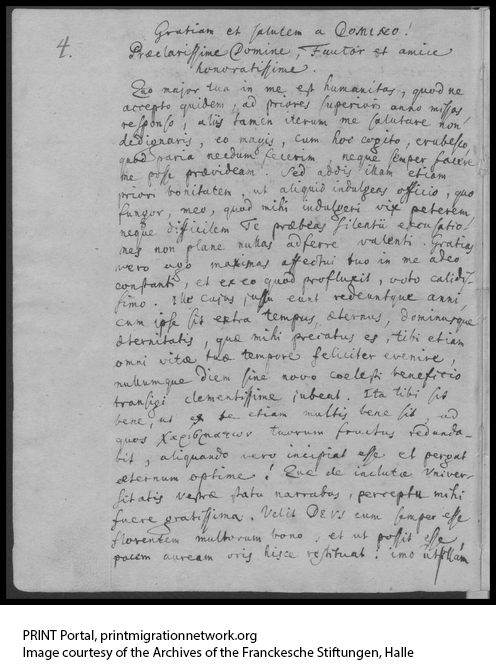 4.
Gratiam et salutem a DOMINO!
Præclarissime Domine, Fautor et amice
honoratissime.
Quo major tua in me est humanitas, quod ne
accepto quidem, ad priores superiori anno missas
responso, aliis tamen iterum me salutare non
dedignaris, eo magis, cum hoc cogito, erubesco,
quod paria necdum fecerim, neque semper facere
me posse prævideam. Sed addis illam etiam
priori bonitatem, ut aliquid indulgens officio, quo
fungor, meo, quod mihi indulgeri vix peterem,
neque difficilem Te præbeas silentii excusatio-
nes non plane nullas adferre valenti. Gratias
vero ago maximas affectui tuo in me adeo
constanti, et ex eo quod profluxit, voto calidis-
simo. Ille cujus jussu eunt redeuntque anni,
cum ipse sit extra tempus, æternus, dominusque
æternitatis, quæ mihi precatus es, tibi etiam
omni vitæ tuæ tempore feliciter evenire,
nullumque diem sine novo coelesti beneficio
transigi clementissime jubeat. Ita tibi sit
bene, ut ex te etiam multis bene sit, ad
quos χαρισμάτων tuorum fructus redunda-
bit, aliquando vero incipiat esse et pergat
æternum optime! Quæ de inclutæ Univer-
sitatis vestræ statu narrabas, perceptu mihi
fuere gratissima. Velit DEUS eum semper esse
florentem multorum bono, et ut possit esse
pacem auream oris hisce restituat: imo
PRINT Portal, printmigrationnetwork.org
Image courtesy of the Archives of the Franckesche Stiftungen, Halle